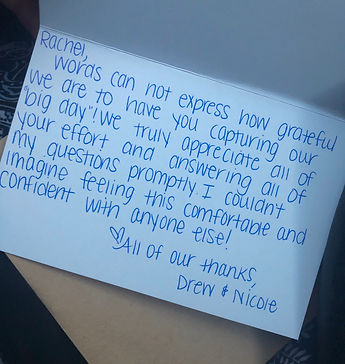 Rachel,
words can not express how grateful
we are to have you capturing our
"big day"! We truly appreciate all of
your effort and answering all of
my questions promptly. I couldn't
imagine feeling this comfortable and
confident with anyone else!
♡ All of our thanks,
Drew & Nicole